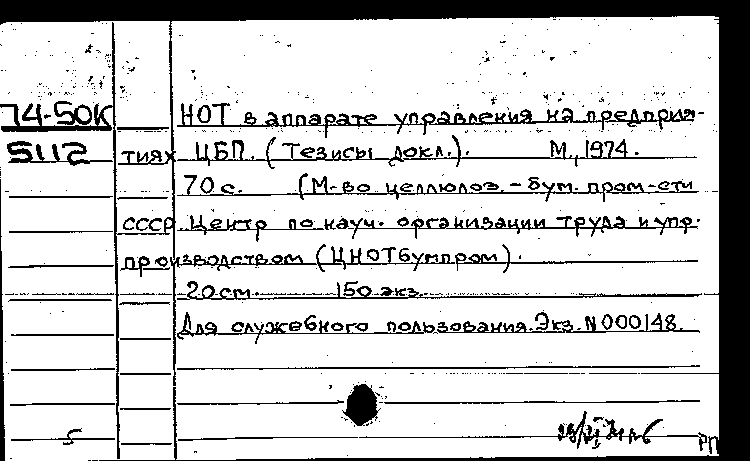 74-50К НОТ в аппарате управления на предприя-
5112 тиях ЦБП. (Тезисы докл.). М., 1974.
70 с. (М-во целлюлоз.-бум. пром-сти
СССР. Центр по науч. организации труда и упр.
производством (ЦНОТбумпром).
20 см. 150 экз.
Для служебного пользования. Экз. N 000148.
5
РП